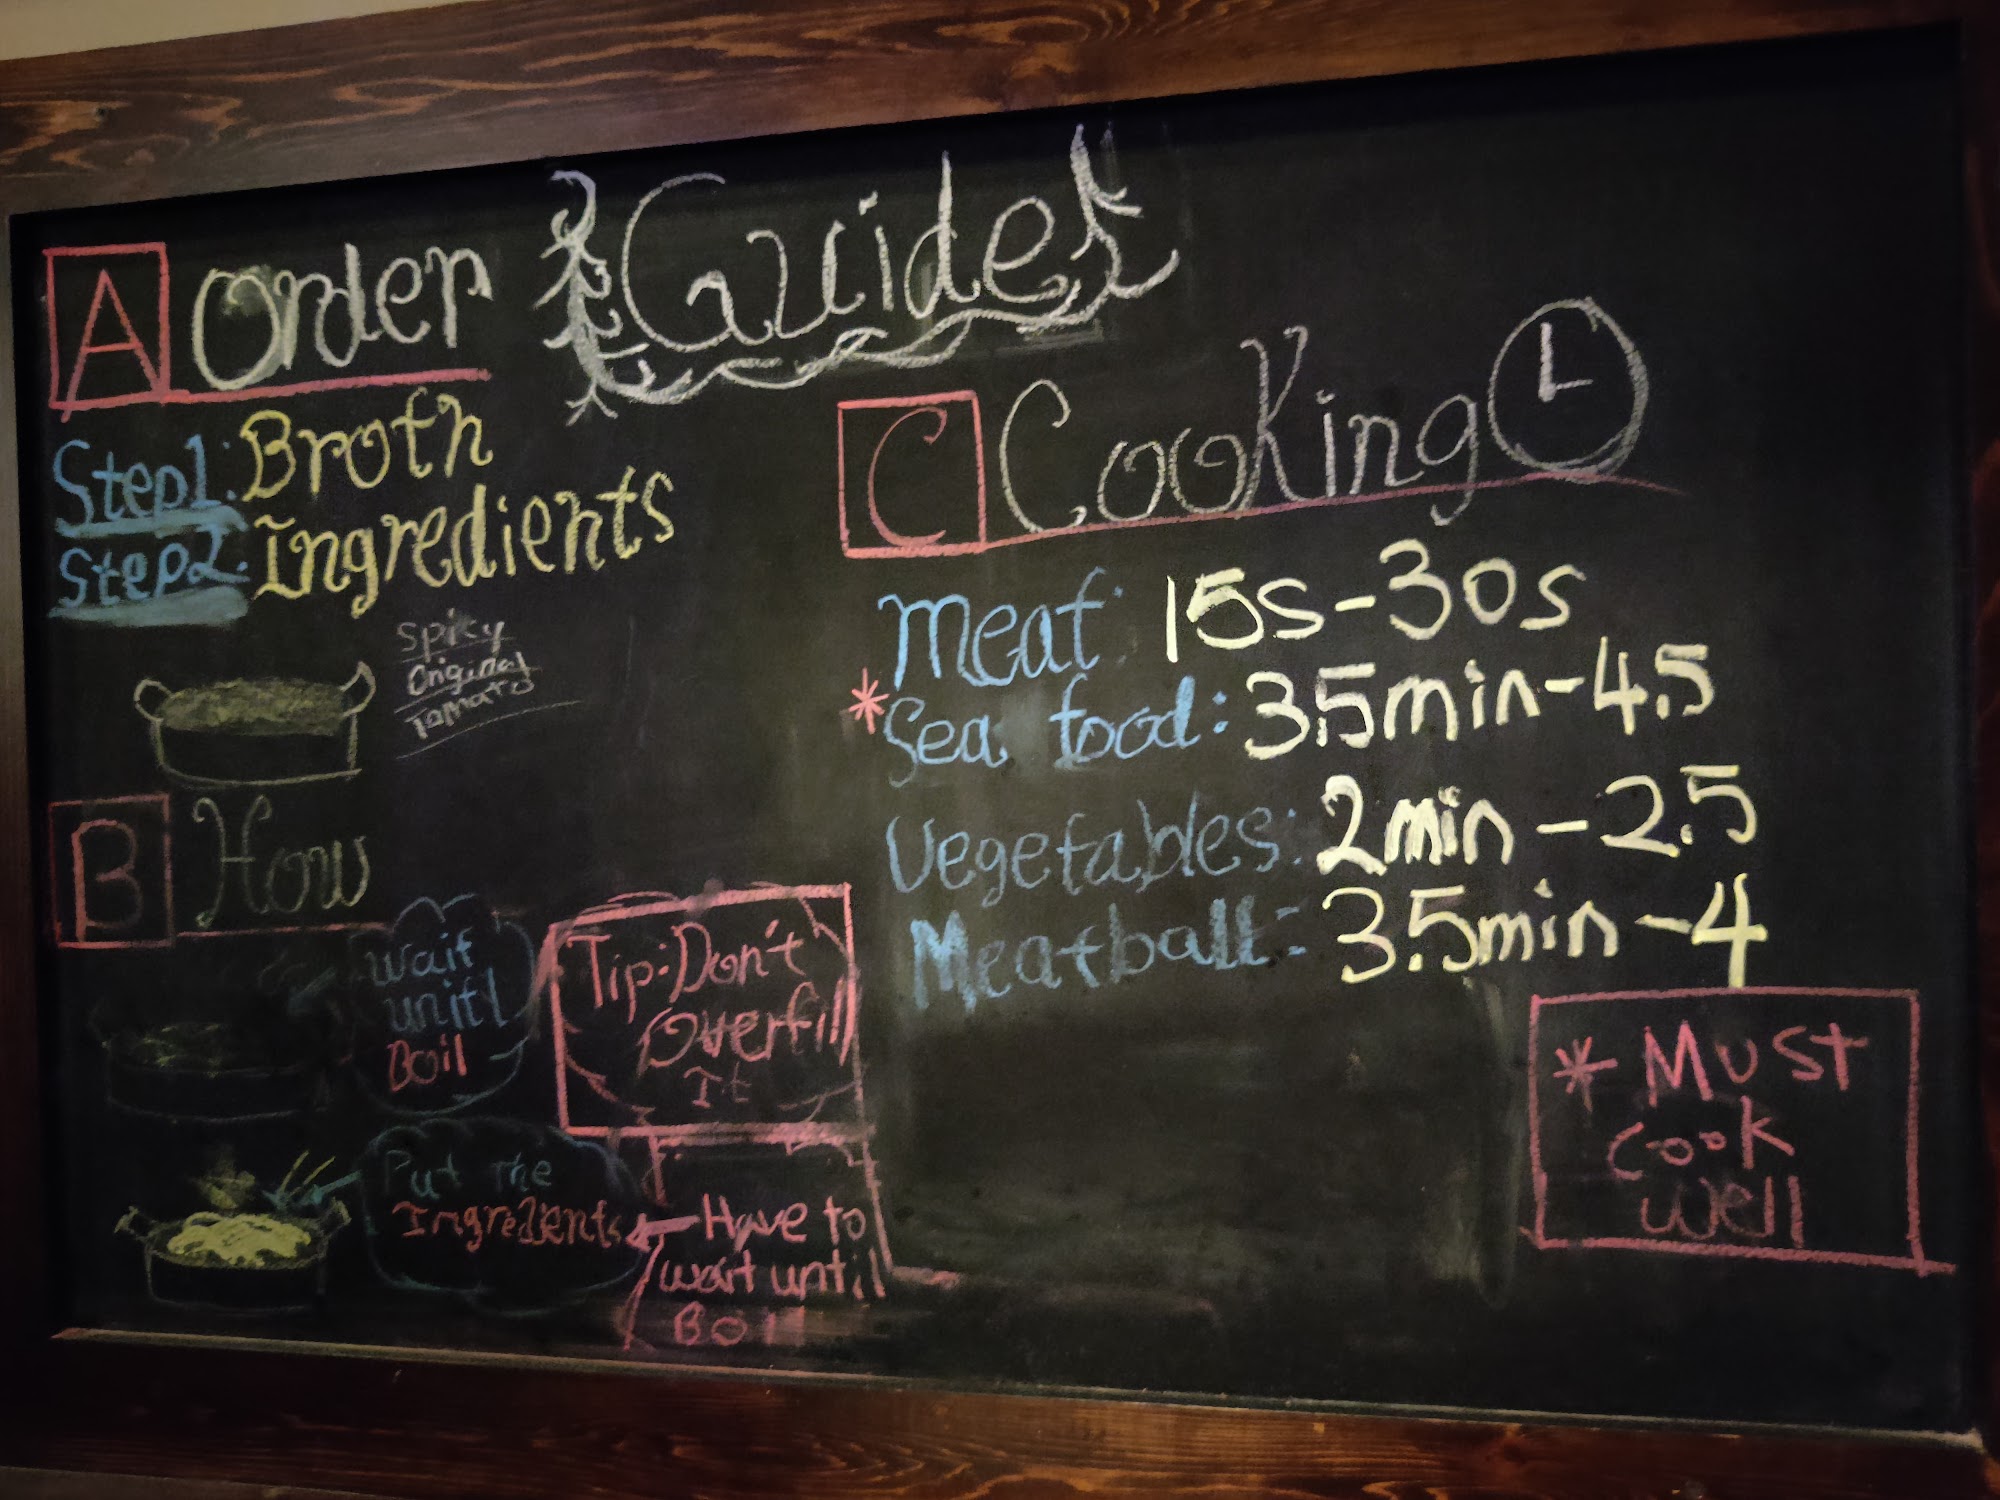 Guide
A Order
Step1: Broth
Step2: Ingredients
Spicy
Original
Tomato
B How
Wait
unitl
Boil
Tip: Don't
Overfill
It
Put The
Ingredients
Have to
wait until
Boil
C Cooking
Meat: 15s-30s
*Sea food: 3.5min-4.5
Vegetables: 2min-2.5
Meatball: 3.5min-4
* Must
Cook
well